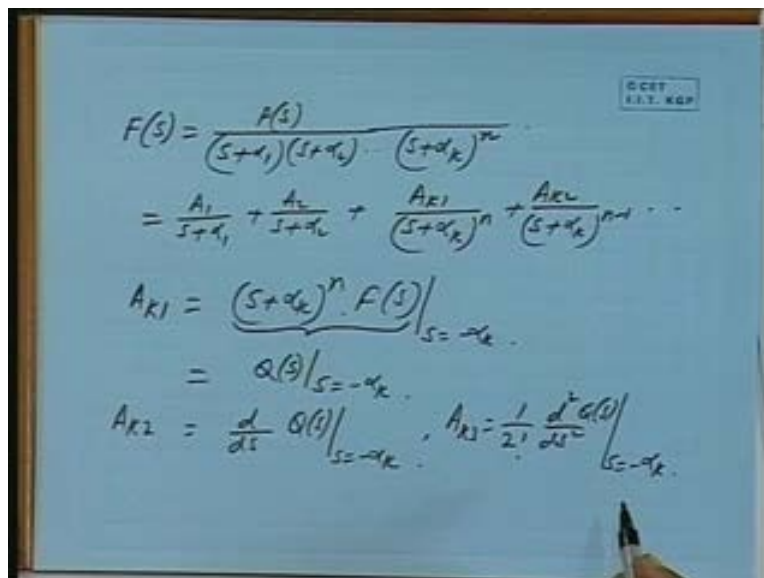 © CET
I.I.T. KGP
F(s) = P(s) / (s+α₁)(s+α₂) ... (s+αₖ)ⁿ ..
= A₁/(s+α₁) + A₂/(s+α₂) + A_K1/(s+αₖ)ⁿ + A_K2/(s+αₖ)ⁿ⁻¹ ...
A_K1 = (s+αₖ)ⁿ . F(s) |s=-αₖ .
= Q(s) |s=-αₖ .
A_K2 = d/ds Q(s) |s=-αₖ . , A_K3 = 1/2! d²/ds² Q(s) |s=-αₖ .